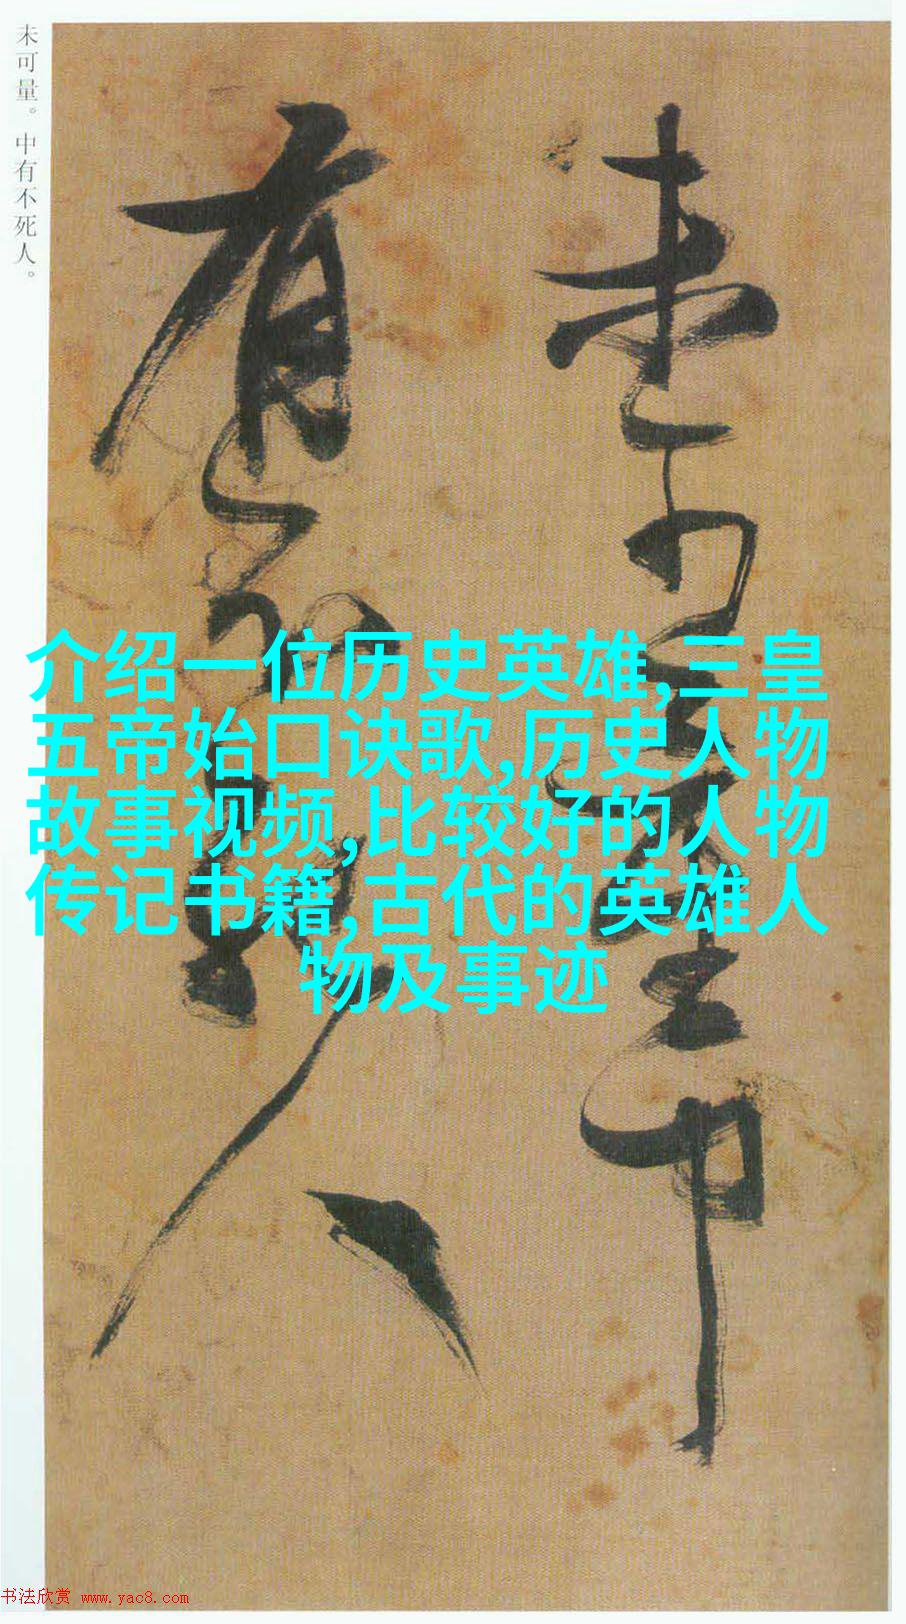 未可量。中有不死人。
未可量中
有不死人
介绍一位历史英雄,三皇
五帝始口诀歌,历史人物
故事视频,比较好的人物
传记书籍,古代的英雄人
物及事迹
书法欣赏 www.yac8.com